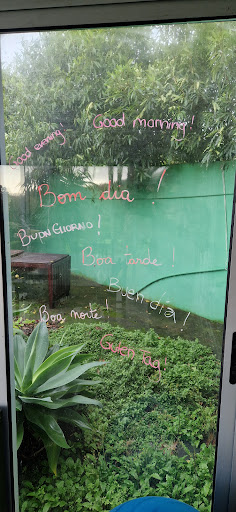 Good morning!
Good evening
"Bom dia!
BUON GIORNO!
Boa tarde!
Buen dia!
Boa noite!
Guten Tag